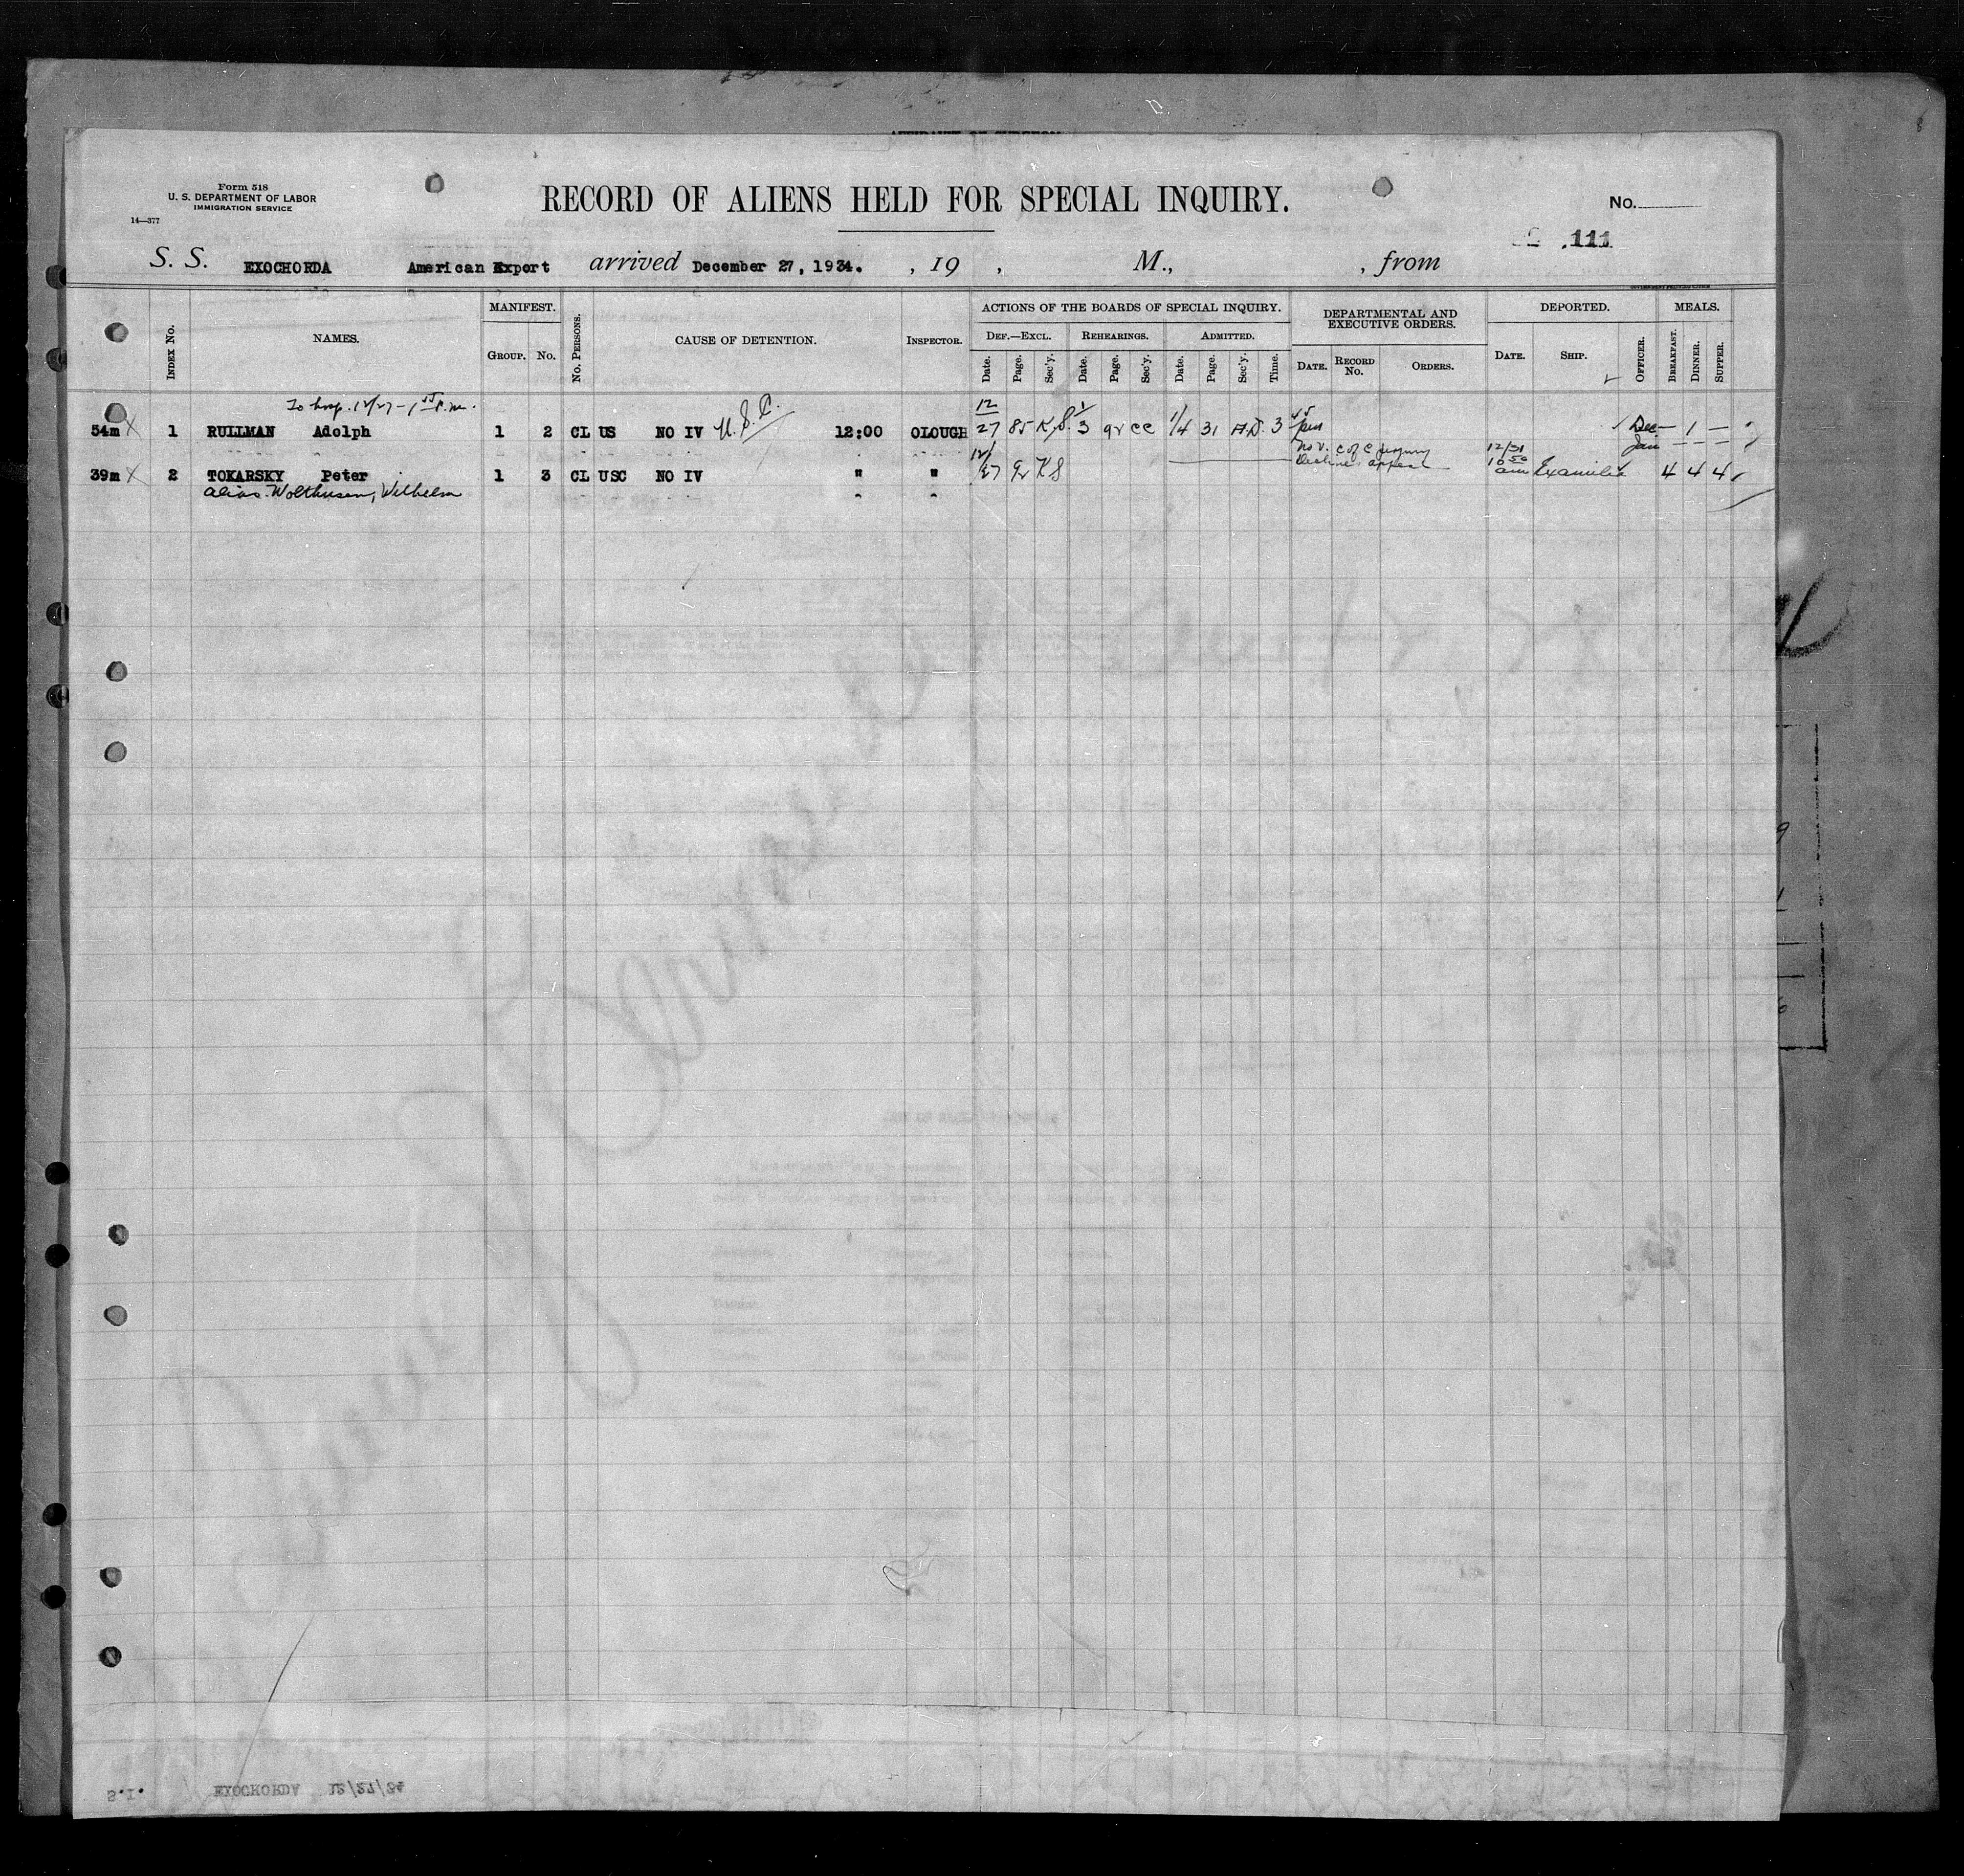 Form 518
U. S. DEPARTMENT OF LABOR
IMMIGRATION SERVICE
14—377
RECORD OF ALIENS HELD FOR SPECIAL INQUIRY.
No.
111
S. S. EXOCHORDA American Export arrived December 27, 1934. , 19 , M., , from
INDEX No.
NAMES.
MANIFEST.
GROUP. No.
No. PERSONS.
CAUSE OF DETENTION.
INSPECTOR.
ACTIONS OF THE BOARDS OF SPECIAL INQUIRY.
DEF.—EXCL. REHEARINGS. ADMITTED.
Date. Page. Sec'y. Date. Page. Sec'y. Date. Page. Sec'y. Time.
DEPARTMENTAL AND
EXECUTIVE ORDERS.
DATE. RECORD No. ORDERS.
DEPORTED.
DATE. SHIP. OFFICER.
MEALS.
BREAKFAST. DINNER. SUPPER.
To hosp. 12/27 - 1 P.m.
54m X 1 RULLMAN Adolph 1 2 CL US NO IV U.S.C. 12:00 OLOUGH 12/27 85 K.S. 1/3 92 CC 1/4 31 A.D. 3 Dec — 1 —
Jan — — —
39m X 2 TOKARSKY Peter 1 3 CL USC NO IV " " 12/27 92 KS No V. C of C perjury 12/31
Decline appeal 10 50 am Examilia 4 4 4
alias Wolthusen, Wilhelm
S.I. EXOCHORDA 12/27/34